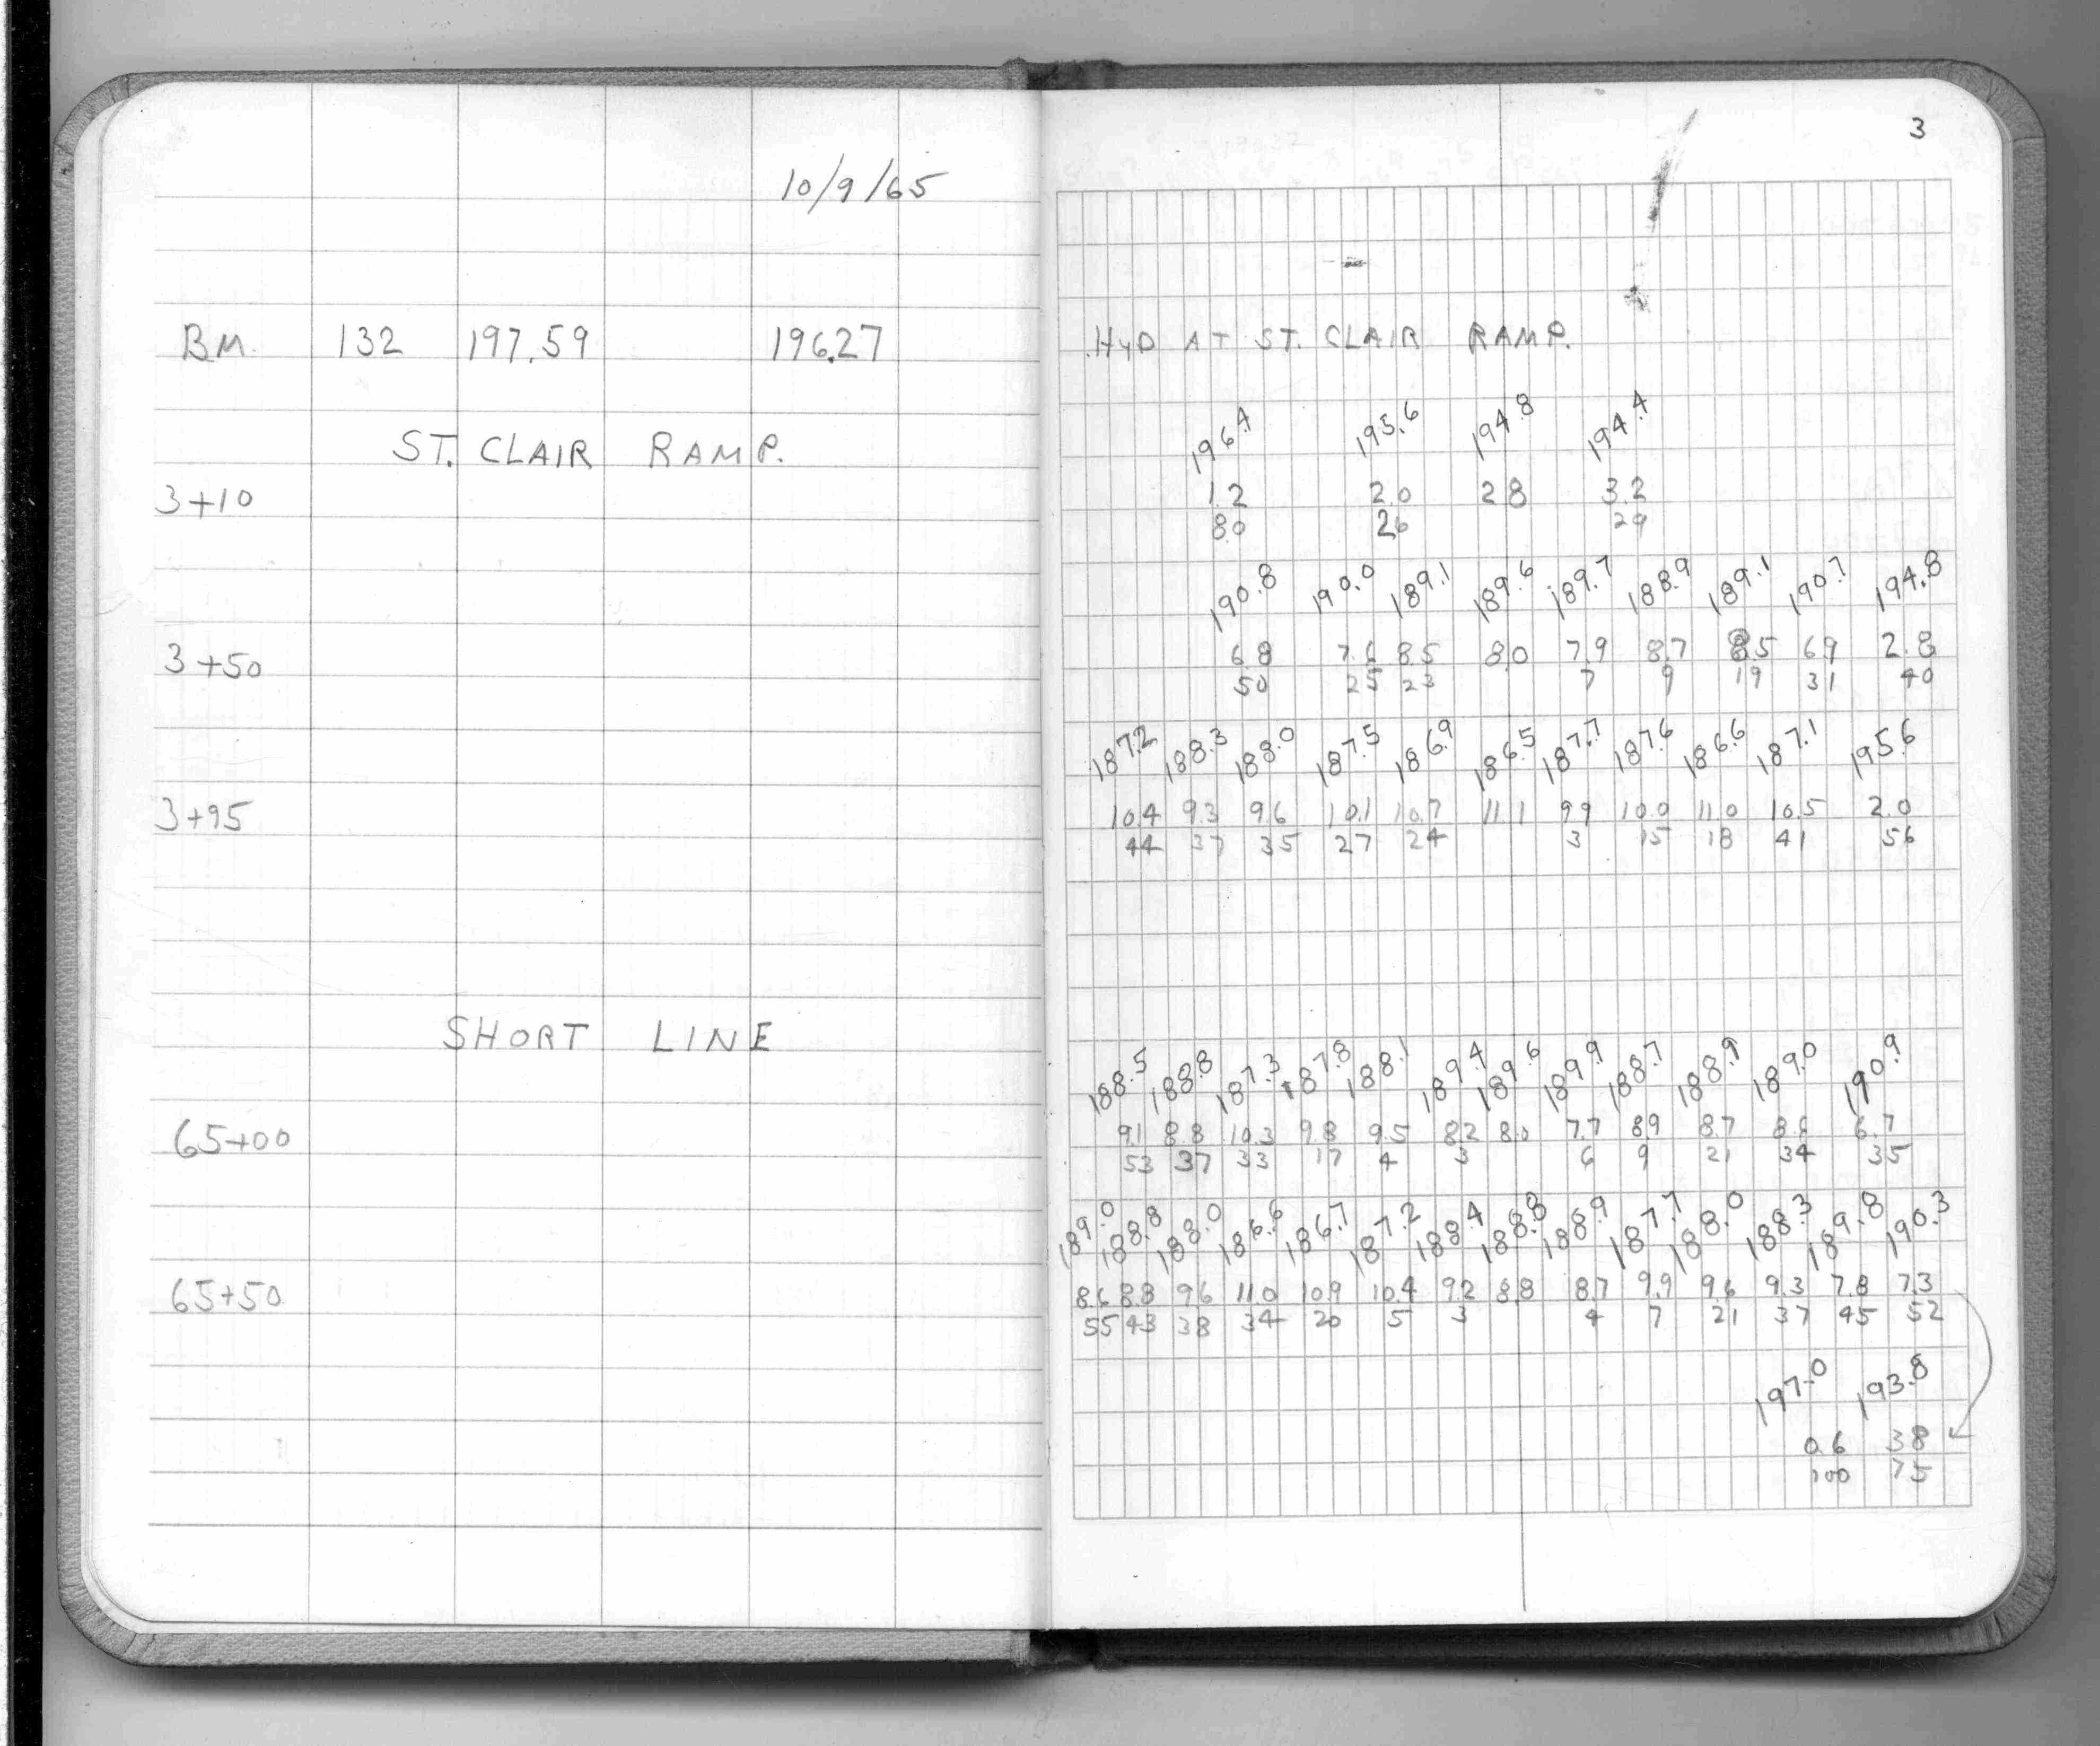 10/9/65
BM. 132 197.59 196.27
ST. CLAIR RAMP.
3+10
3+50
3+95
SHORT LINE
65+00
65+50
3
HYD AT ST. CLAIR RAMP.
196.4 195.6 194.8 194.4
1.2 2.0 2.8 3.2
80 26 29
190.8 190.0 189.1 189.6 189.7 188.9 189.1 190.7 194.8
6.8 7.6 8.5 8.0 7.9 8.7 8.5 6.9 2.8
50 25 23 7 9 19 31 40
187.2 188.3 188.0 187.5 186.9 186.5 187.7 187.6 186.6 187.1 195.6
10.4 9.3 9.6 10.1 10.7 11.1 9.9 10.0 11.0 10.5 2.0
44 37 35 27 24 3 15 18 41 56
188.5 188.8 187.3 187.8 188.1 189.4 189.6 189.9 188.7 188.9 189.0 190.9
9.1 8.8 10.3 9.8 9.5 8.2 8.0 7.7 8.9 8.7 8.6 6.7
53 37 33 17 4 3 6 9 21 34 35
189.0 188.8 188.0 186.6 186.7 187.2 188.4 188.8 188.9 187.7 188.0 188.3 189.8 190.3
8.6 8.8 9.6 11.0 10.9 10.4 9.2 8.8 8.7 9.9 9.6 9.3 7.8 7.3
55 43 38 34 20 5 3 4 7 21 37 45 52
197.0 193.8
0.6 3.8
100 75